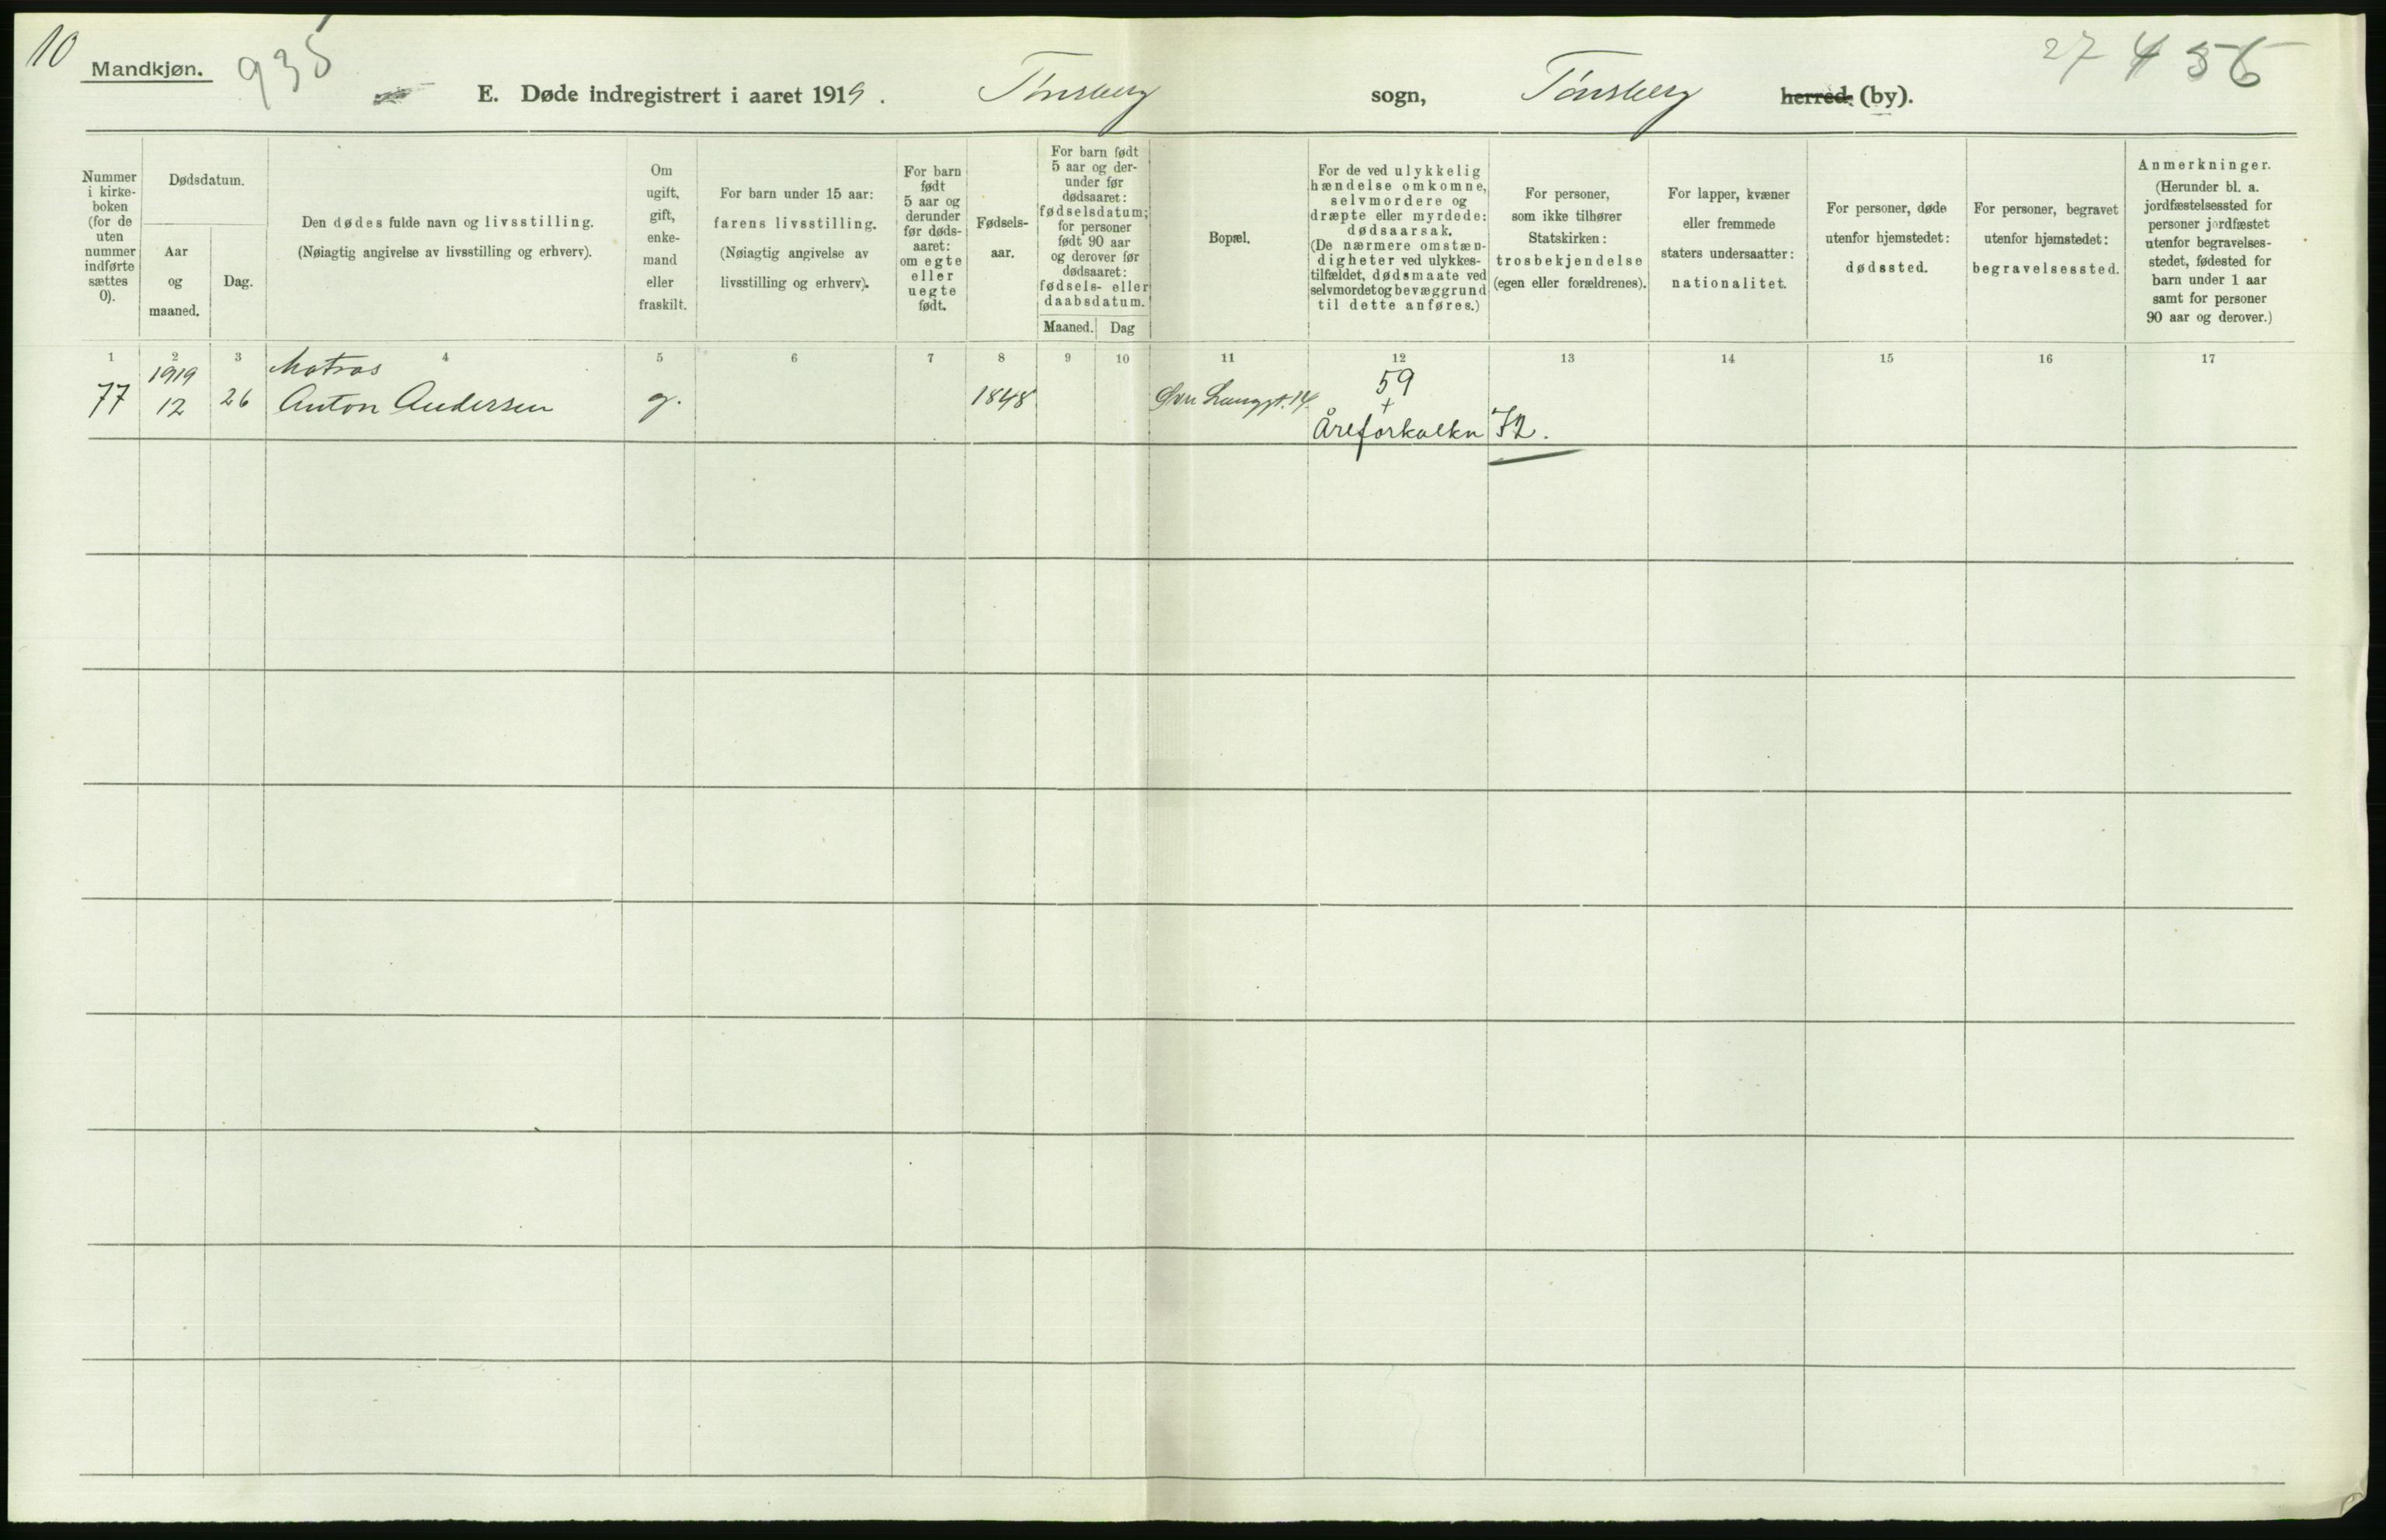 10
Mandkjøn.
935
27 456
E. Døde indregistrert i aaret 1919. Tønsberg sogn, Tønsberg herred (by).
Nummer
i kirke-
boken
(for de
uten
nummer
indførte
sættes
0).
Dødsdatum.
Aar
og
maaned.
Dag.
Den dødes fulde navn og livsstilling.
(Nøiagtig angivelse av livsstilling og erhverv).
Om
ugift,
gift,
enke-
mand
eller
fraskilt.
For barn under 15 aar:
farens livsstilling.
(Nøiagtig angivelse av
livsstilling og erhverv).
For barn
født
5 aar og
derunder
før døds-
aaret:
om egte
eller
uegte
født.
Fødsels-
aar.
For barn født
5 aar og der-
under før
dødsaaret:
fødselsdatum;
for personer
født 90 aar
og derover før
dødsaaret:
fødsels- eller
daabsdatum.
Maaned. Dag
Bopæl.
For de ved ulykkelig
hændelse omkomne,
selvmordere og
dræpte eller myrdede:
dødsaarsak.
(De nærmere omstæn-
digheter ved ulykkes-
tilfældet, dødsmaate ved
selvmordet og bevæggrund
til dette anføres.)
For personer,
som ikke tilhører
Statskirken:
trosbekjendelse
(egen eller forældrenes).
For lapper, kvæner
eller fremmede
staters undersaatter:
nationalitet.
For personer, døde
utenfor hjemstedet:
dødssted.
For personer, begravet
utenfor hjemstedet:
begravelsessted.
Anmerkninger.
(Herunder bl. a.
jordfæstelsessted for
personer jordfæstet
utenfor begravelses-
stedet, fødested for
barn under 1 aar
samt for personer
90 aar og derover.)
1 2 3 4 5 6 7 8 9 10 11 12 13 14 15 16 17
1919 Matros 59
77 12 26 Anton Andersen g. 1848 Øvre Langgt. 14. +
Åreforkalkn 72.